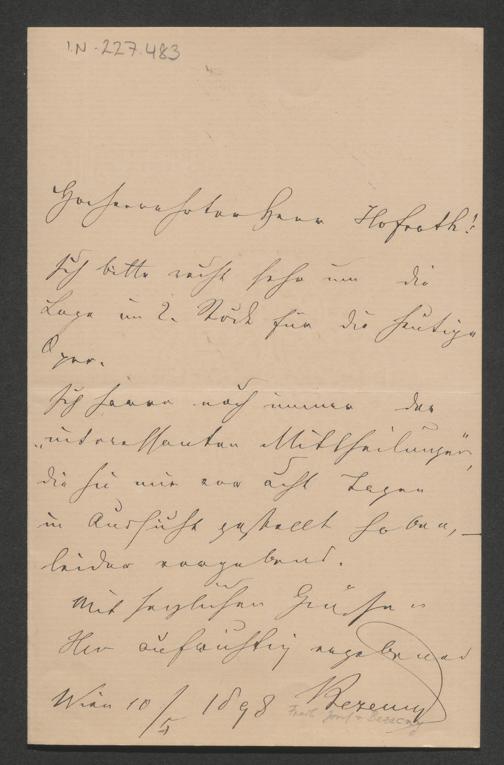 I.N-227.483
Hochverehrter Herr Hofrath!
Ich bitte recht sehr um die
Loge im 2. Stock für die heutige
Oper.
Ich harre noch immer der
„interessanten Mittheilungen",
die Sie mir vor acht Tagen
in Aussicht gestellt haben, –
leider vergebens.
Mit herzlichen Grüßen
Ihr aufrichtig ergebener
Wien 10/5 1898 Bezecny
Freih. Josef v. Bezecny